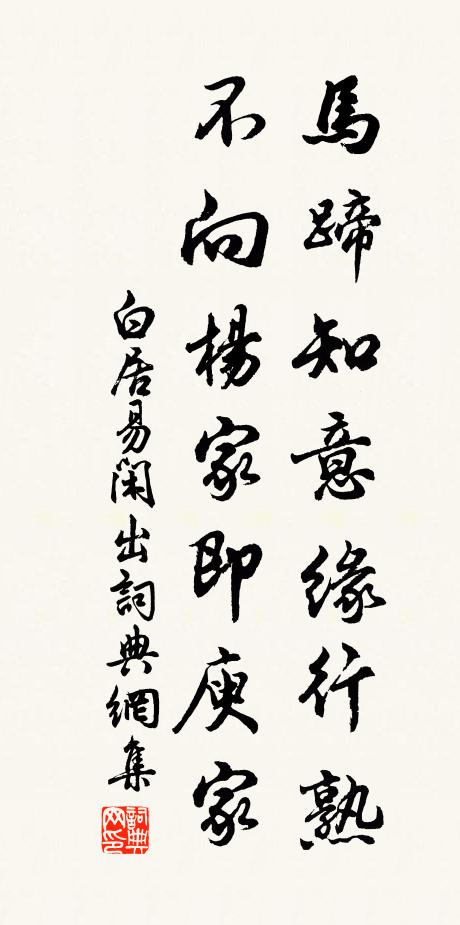 馬蹄知意緣行熟
不向楊家即庾家
白居易閑出詞典網集
詞典网印